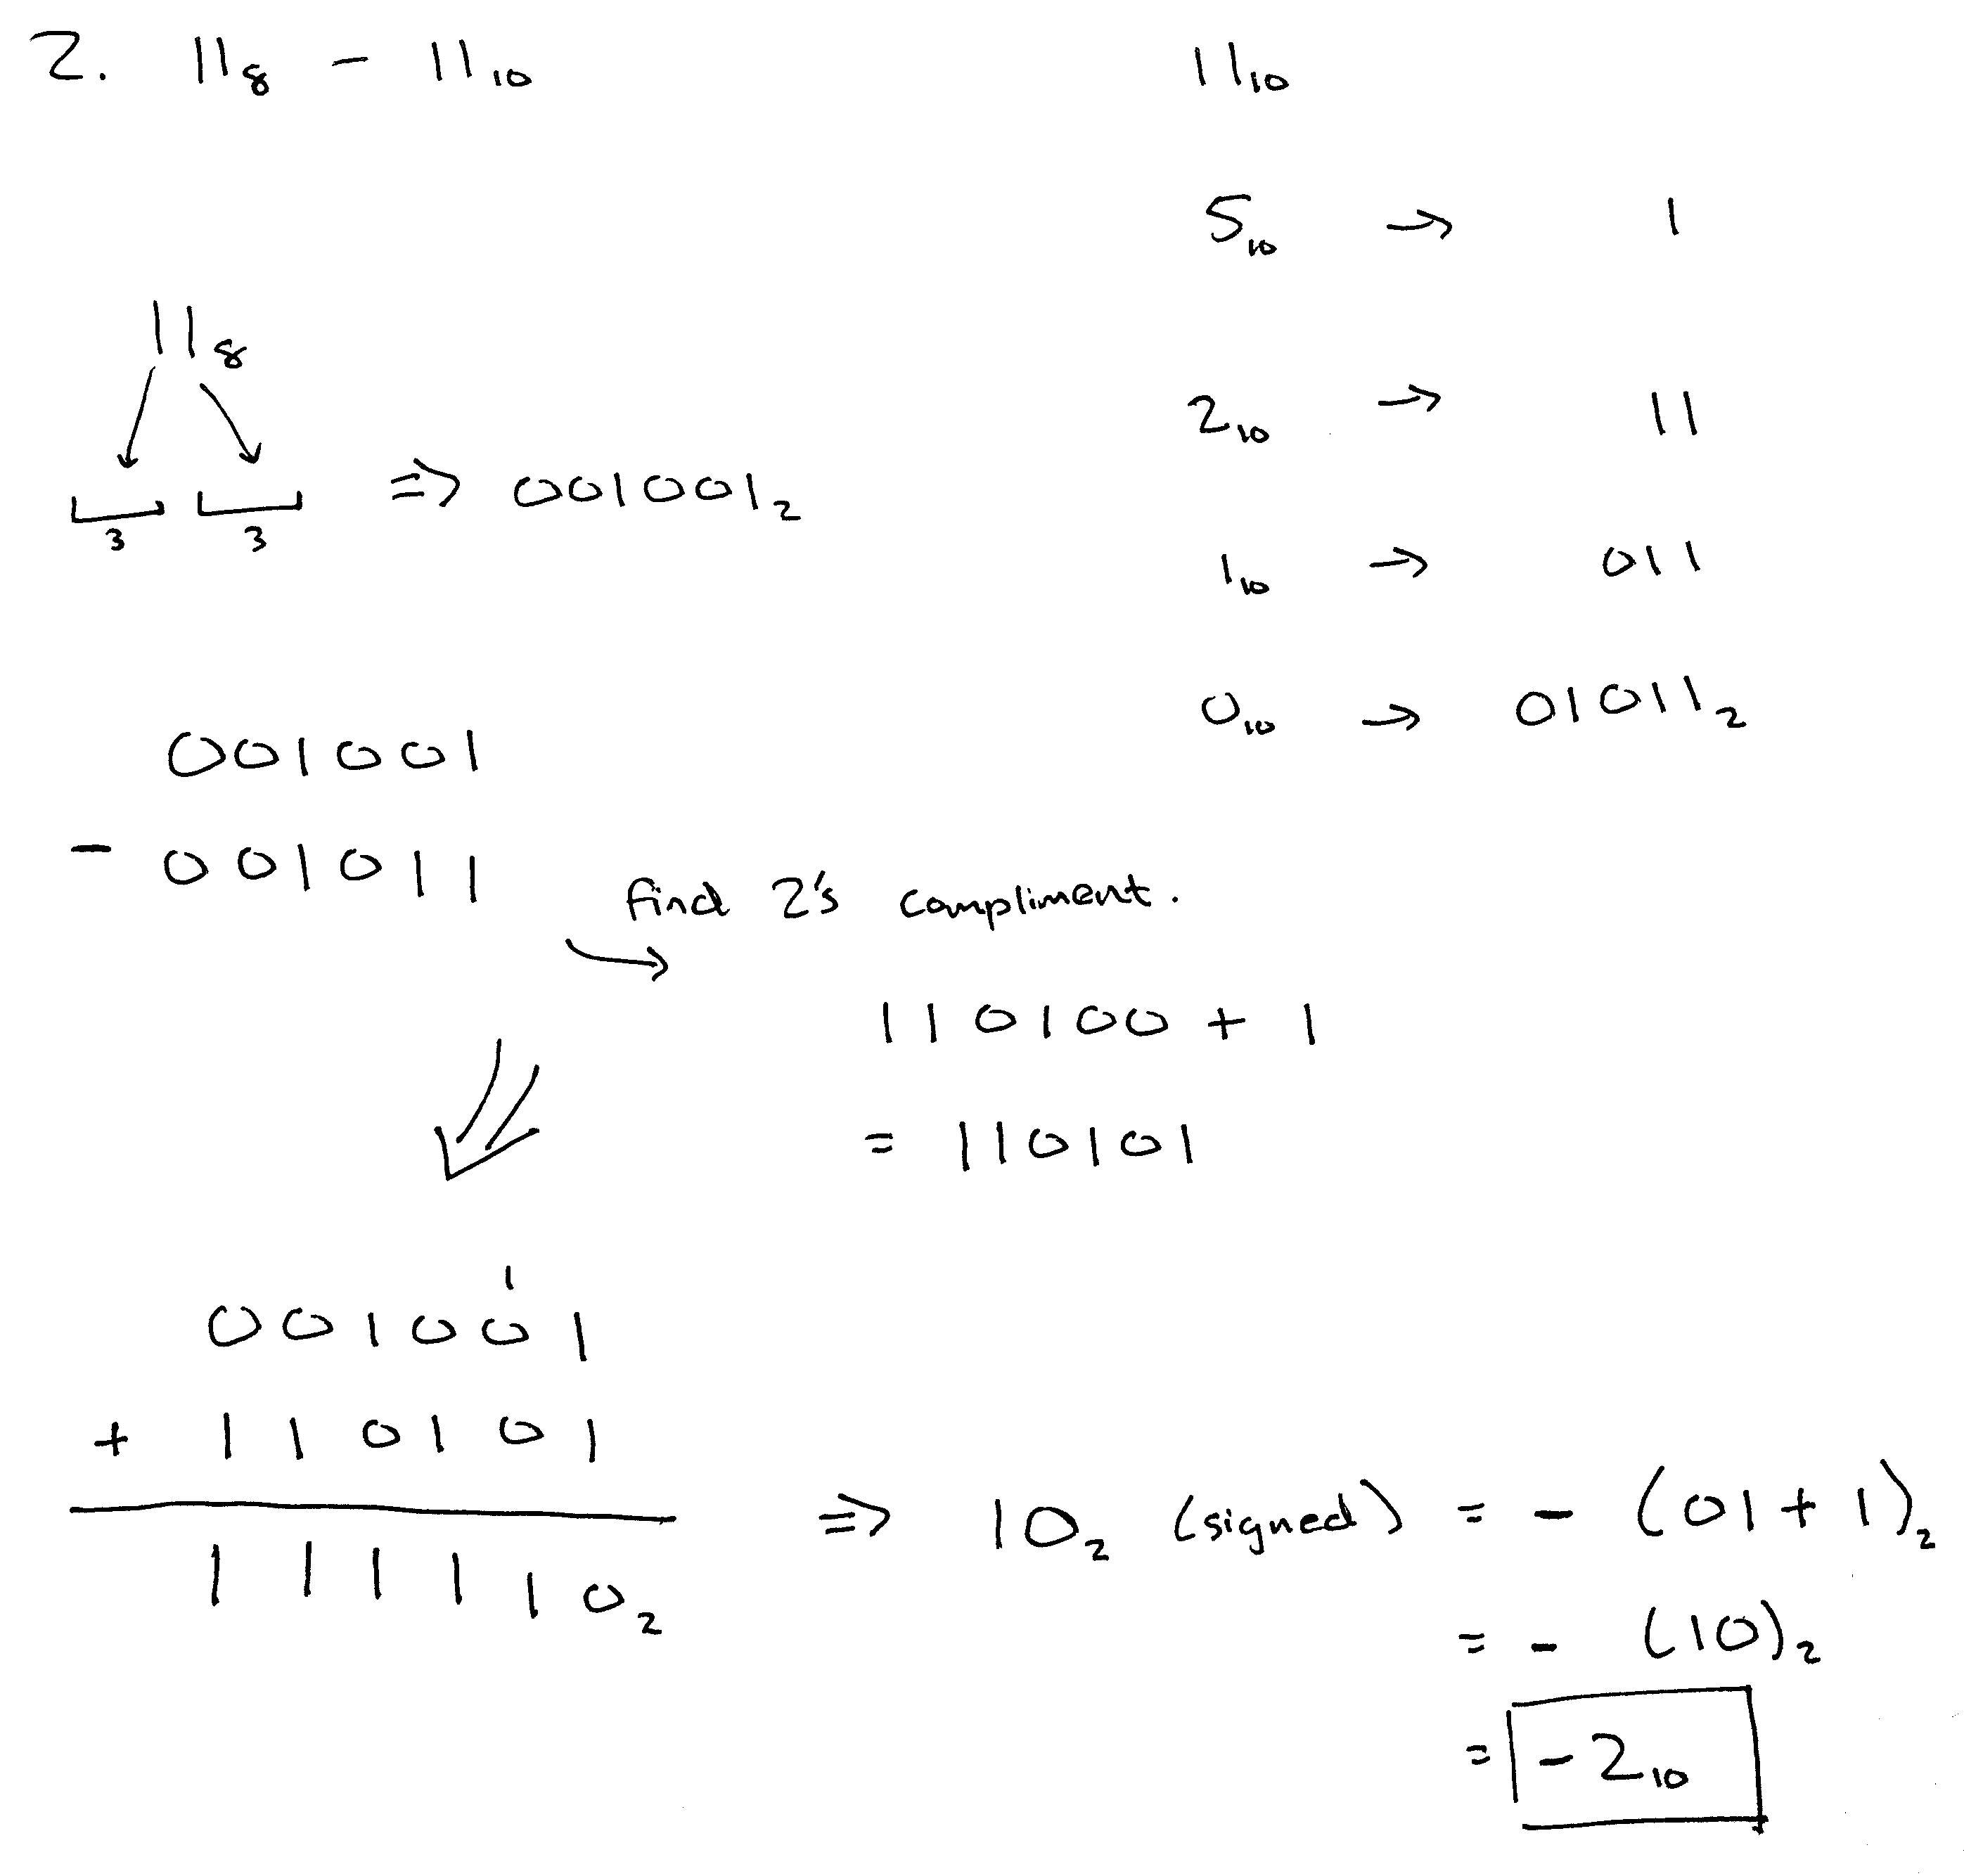 2. 11₈ - 11₁₀
11₁₀
5₁₀ → 1
2₁₀ → 11
1₁₀ → 011
0₁₀ → 01011₂
11₈
3 3 ⇒ 001001₂
001001
- 001011
find 2's compliment.
110100 + 1
= 110101
1
001001
+ 110101
111110₂
⇒ 10₂ (signed) = - (01 + 1)₂
= - (10)₂
= -2₁₀